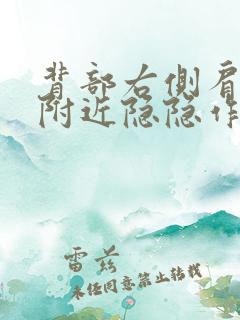 背部右侧肩
附近隐隐作
雷兹
未经同意禁止转载